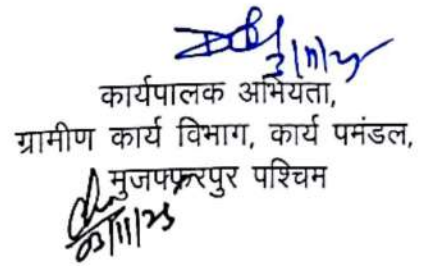 3/11/25
कार्यपालक अभियता,
ग्रामीण कार्य विभाग, कार्य पमंडल,
मुजफ्फरपुर पश्चिम
03/11/25